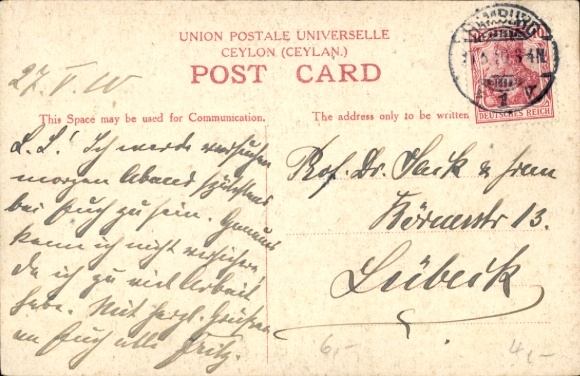 UNION POSTALE UNIVERSELLE
CEYLON (CEYLAN.)
POST CARD
HAMBURG
1
DEUTSCHES REICH
27. V. 10
This Space may be used for Communication.
The address only to be written
L. L.! Ich werde versuchen
morgen Abend spätestens
bei Euch zu sein. Genaues
kann ich nicht versichern,
da ich zu viel Arbeit
habe. Mit herzl. Grüßen
an Euch alle Fritz.
Prof. Dr. & Frau
Körnerstr 13.
Lübeck
6,-
4,-